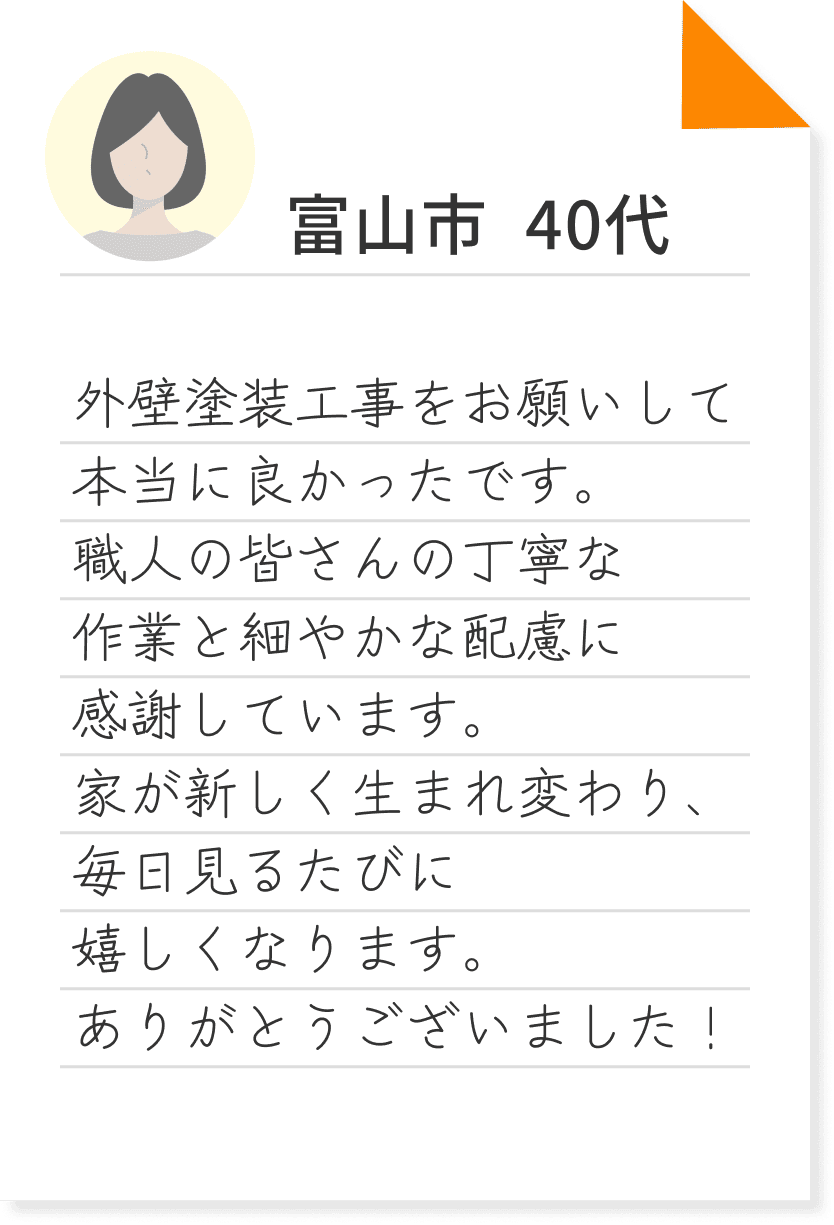 富山市 40代
外壁塗装工事をお願いして
本当に良かったです。
職人の皆さんの丁寧な
作業と細やかな配慮に
感謝しています。
家が新しく生まれ変わり、
毎日見るたびに
嬉しくなります。
ありがとうございました！